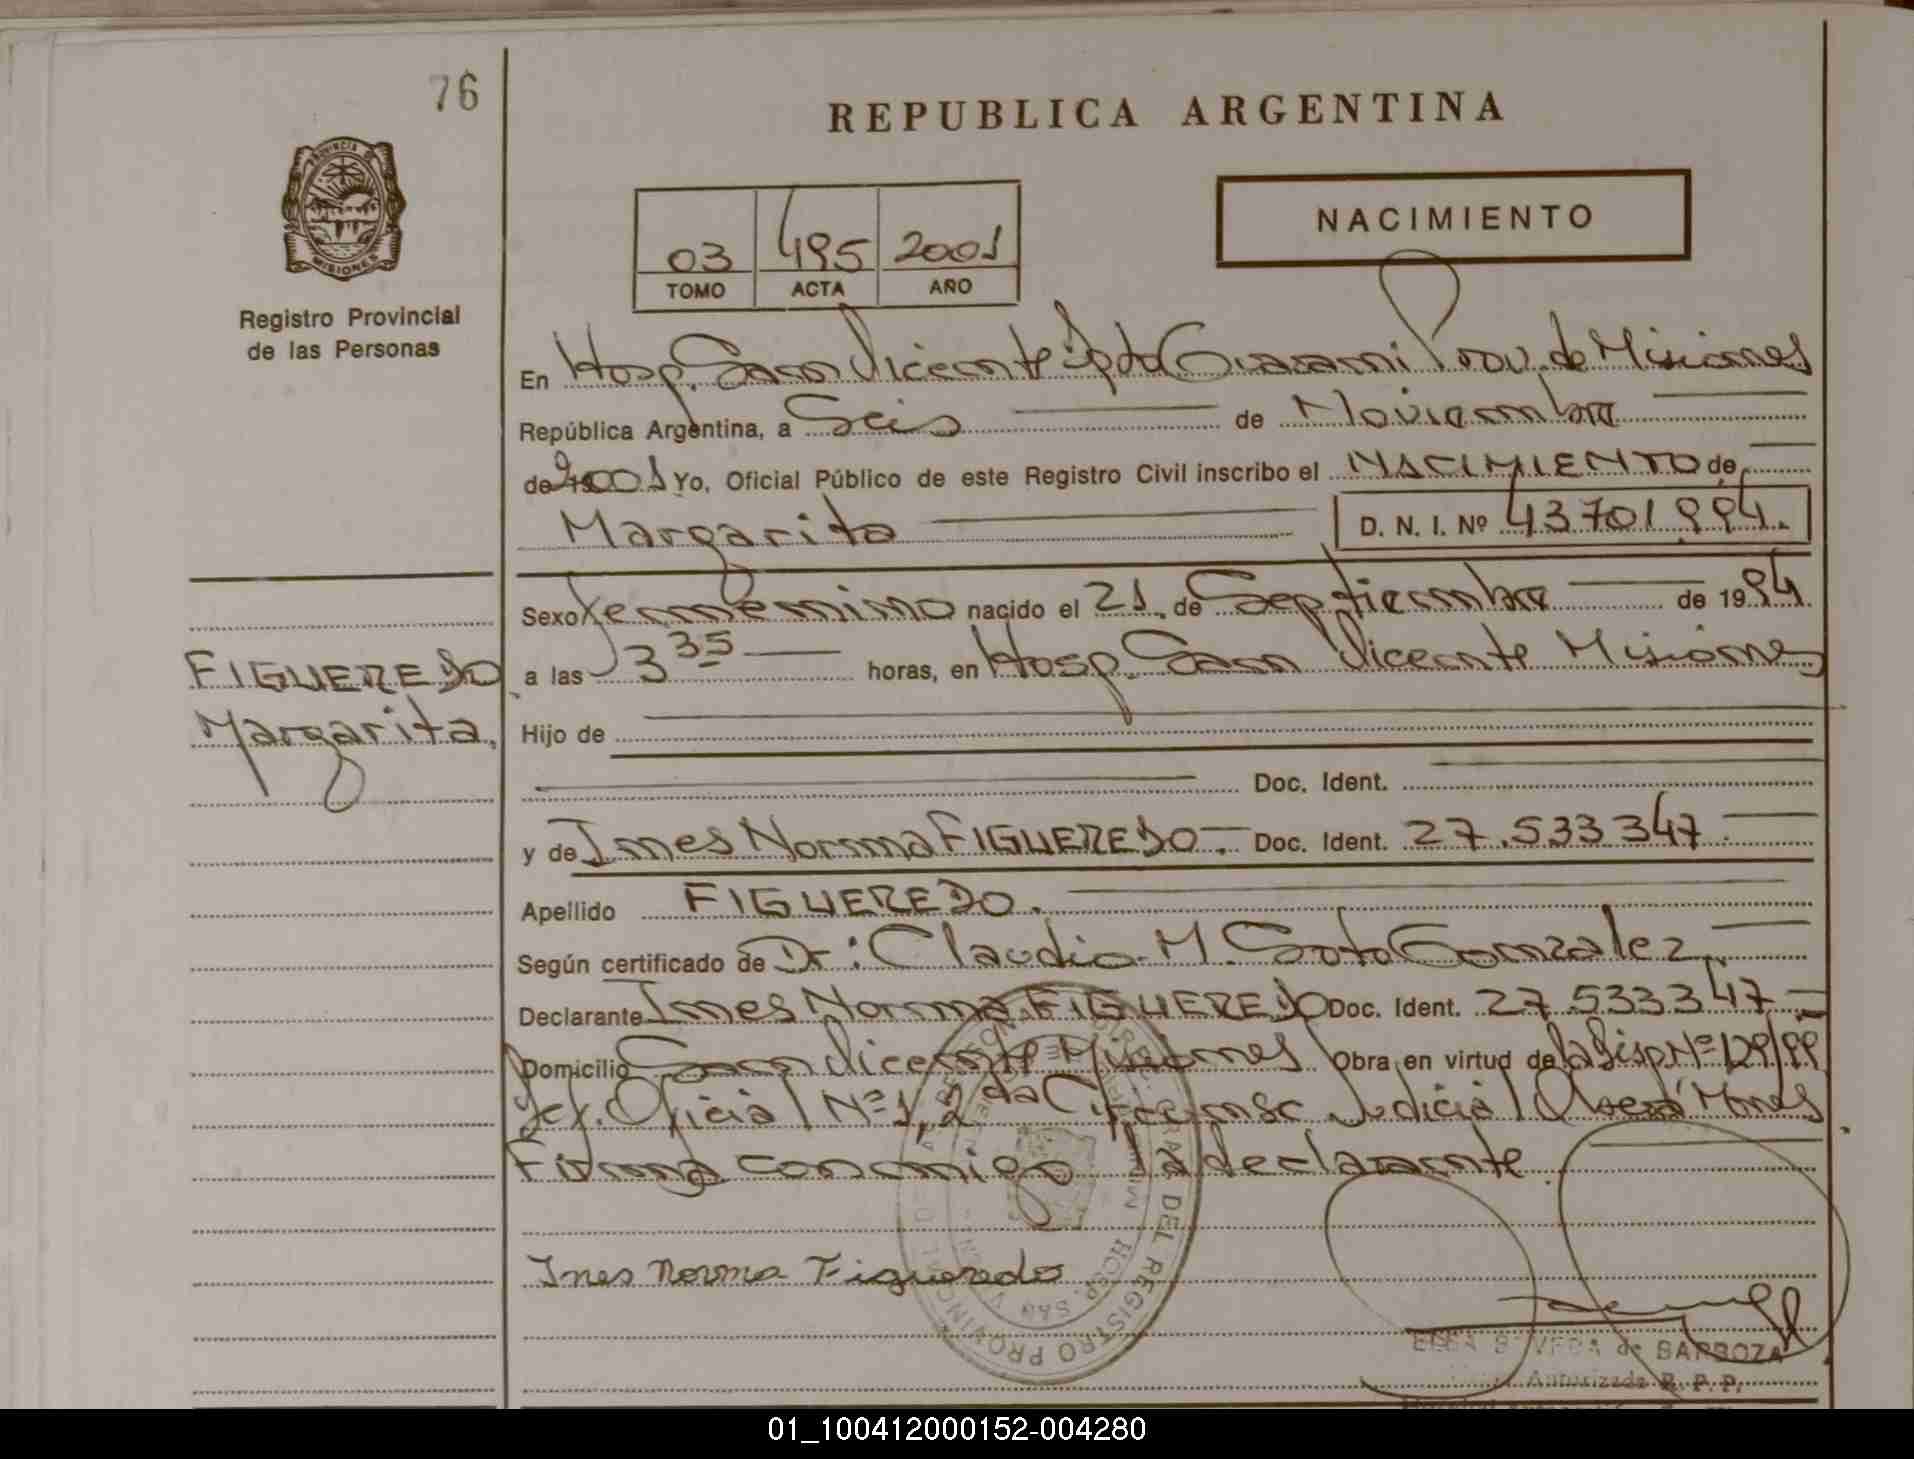 76
REPUBLICA ARGENTINA
PROVINCIA DE
MISIONES
Registro Provincial
de las Personas
03 495 2001
TOMO ACTA AÑO
NACIMIENTO
En Hosp. San Vicente Dpto Guarani Prov. de Misiones
República Argentina, a Seis de Noviembre
de 2001 Yo, Oficial Público de este Registro Civil inscribo el NACIMIENTO de
Margarita D. N. I. Nº 43701994.
Sexo femenino nacido el 21. de Septiembre de 1994.
FIGUEREDO
Margarita.
a las 3 35 horas, en Hosp. San Vicente Misiones
Hijo de
Doc. Ident.
y de Ines Norma FIGUEREDO. Doc. Ident. 27.533347.
Apellido FIGUEREDO.
Según certificado de Dr: Claudio M. Soto Gonzalez
Declarante Ines Norma FIGUEREDO Doc. Ident. 27533347
Domicilio San Vicente Misiones Obra en virtud de la Disp Nº 129/99
Def. Oficial Nº 1, 2da Circunsc Judicial Oberá Mnes
Firma conmigo la declarante.
Ines Norma Figueredo
DEL REGISTRO PROVINC
HOSP. SAN
VEGA de BARBOZA
Autorizada R. P. P.
01_100412000152-004280